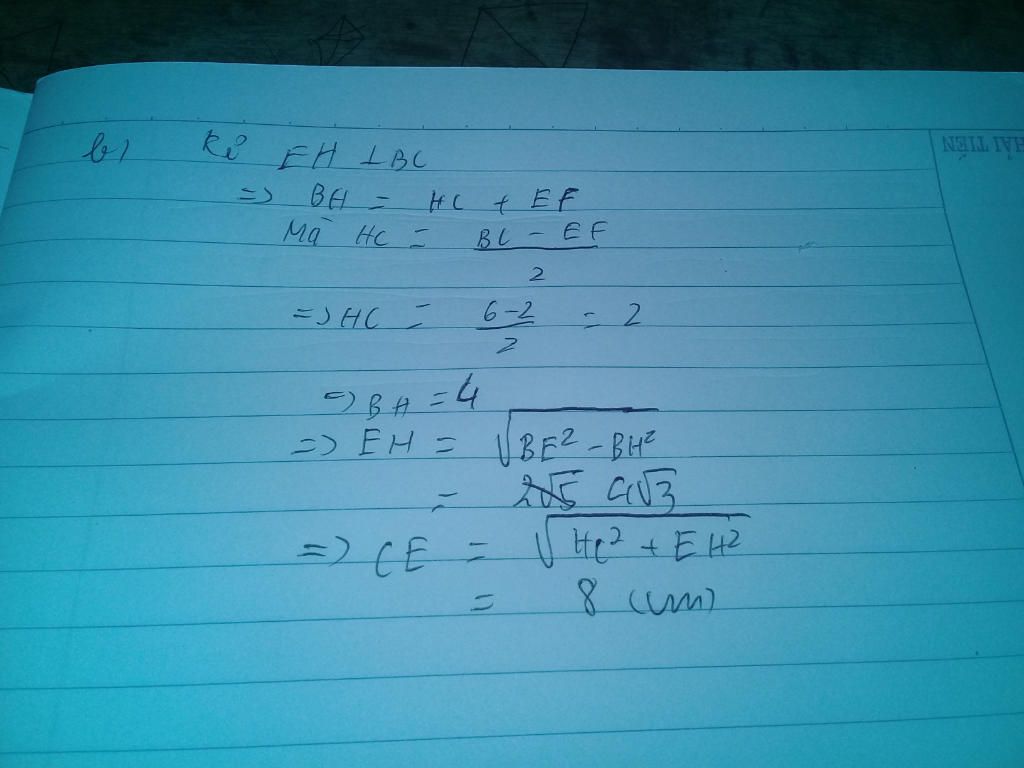 b) Kẻ EH ⊥ BC
=> BH = HC + EF
Mà HC = (BC - EF) / 2
=> HC = (6-2) / 2 = 2
=> BH = 4
=> EH = √(BE² - BH²)
= 4√3
=> CE = √(HC² + EH²)
= 8 (cm)
HẢI TIẾN